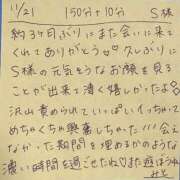 11/21 150分+10分 S様
約3ケ月ぶりにまた会いに来て
くれてありがとう♡久しぶりに
S様の元気そうなお顔を見る
ことが出来て凄く嬉しかったよ♂
沢山責められていっぱいイっちゃって
めちゃくちゃ興奮しちゃた///会え
なかった期間を埋めるかのような
濃い時間を過ごせたね♡また遊ぼうね
みと